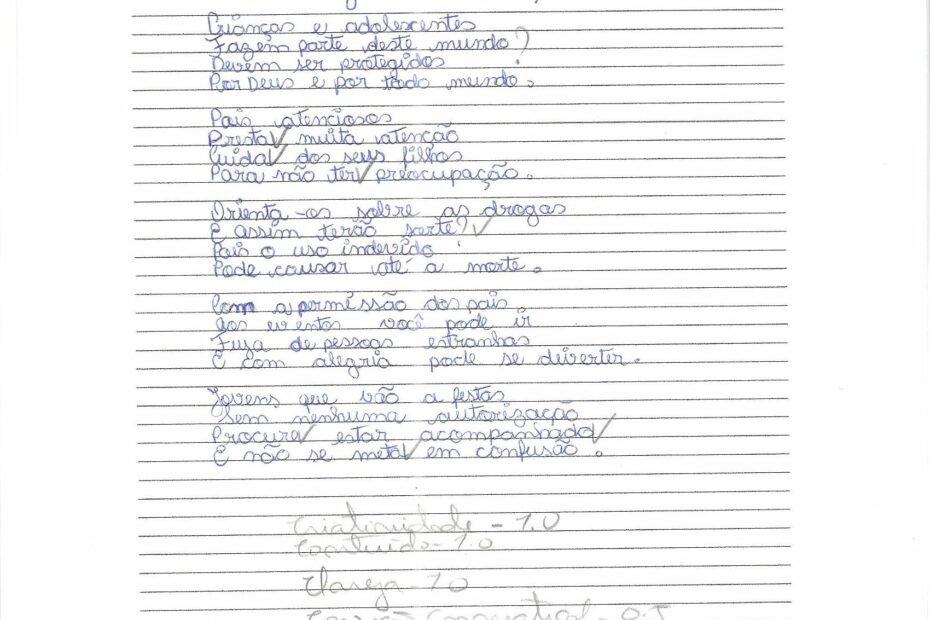 Crianças e adolescentes
Fazem parte deste mundo?
Devem ser protegidos
Por Deus e por todo mundo.
Pais atenciosos
Presta muita atenção
Cuida dos seus filhos
Para não ter preocupação.
Orienta-os sobre as drogas
E assim terão sorte?
Pois o uso indevido
Pode causar até a morte.
Com a permissão dos pais
aos eventos você pode ir
Fuja de pessoas estranhas
E com alegria pode se diverter.
Jovens que vão a festas
Sem nenhuma autorização
Procura estar acompanhado
E não se meta em confusão.
Criatividade - 1.0
Conteúdo - 1.0
Clareza - 1.0
Gramatical - 0.5